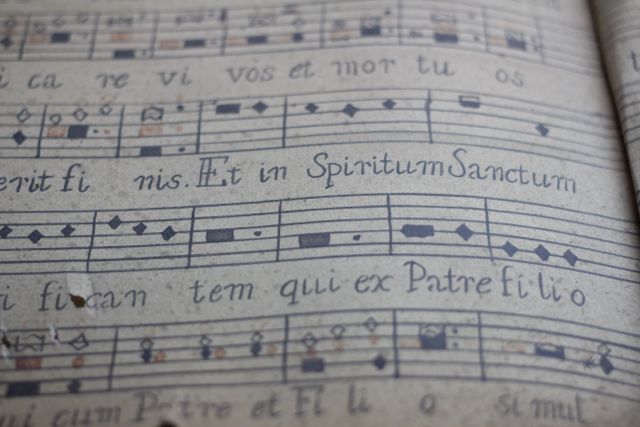 i ca re vi vos et mor tu os
erit fi nis. Et in Spiritum Sanctum
i fi can tem qui ex Patre fi li o
ui cum Patre et Fi li o simul